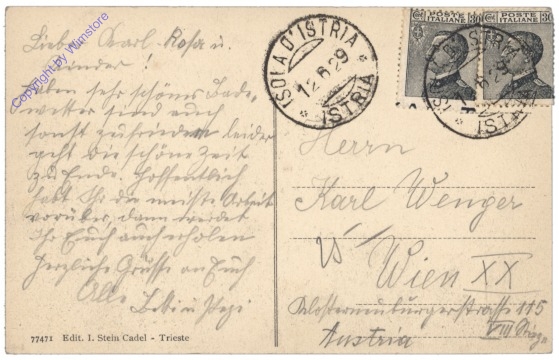 Lieber Karl, Rosa u.
Kinder!
Haben sehr schönes Bade-
wetter sind auch
sonst zufrieden leider
geht die schöne Zeit
zu Ende. Hoffentlich
habt Ihr die meiste Arbeit
vorüber, dann werdet
Ihr Euch auch erholen
Herzliche Grüsse an Euch
Alle
Betti u Pepi
77471 Edit. I. Stein Cadel - Trieste
ISOLA D'ISTRIA
12.6.29
* ISTRIA *
POSTE ITALIANE
POSTE ITALIANE
ISOLA D'ISTRIA
6.29
ISTRIA *
Herrn
Karl Wenger
Wien XX
Klosterneuburgerstrasse 115
VIII
Austria
Copyright by Wumstore